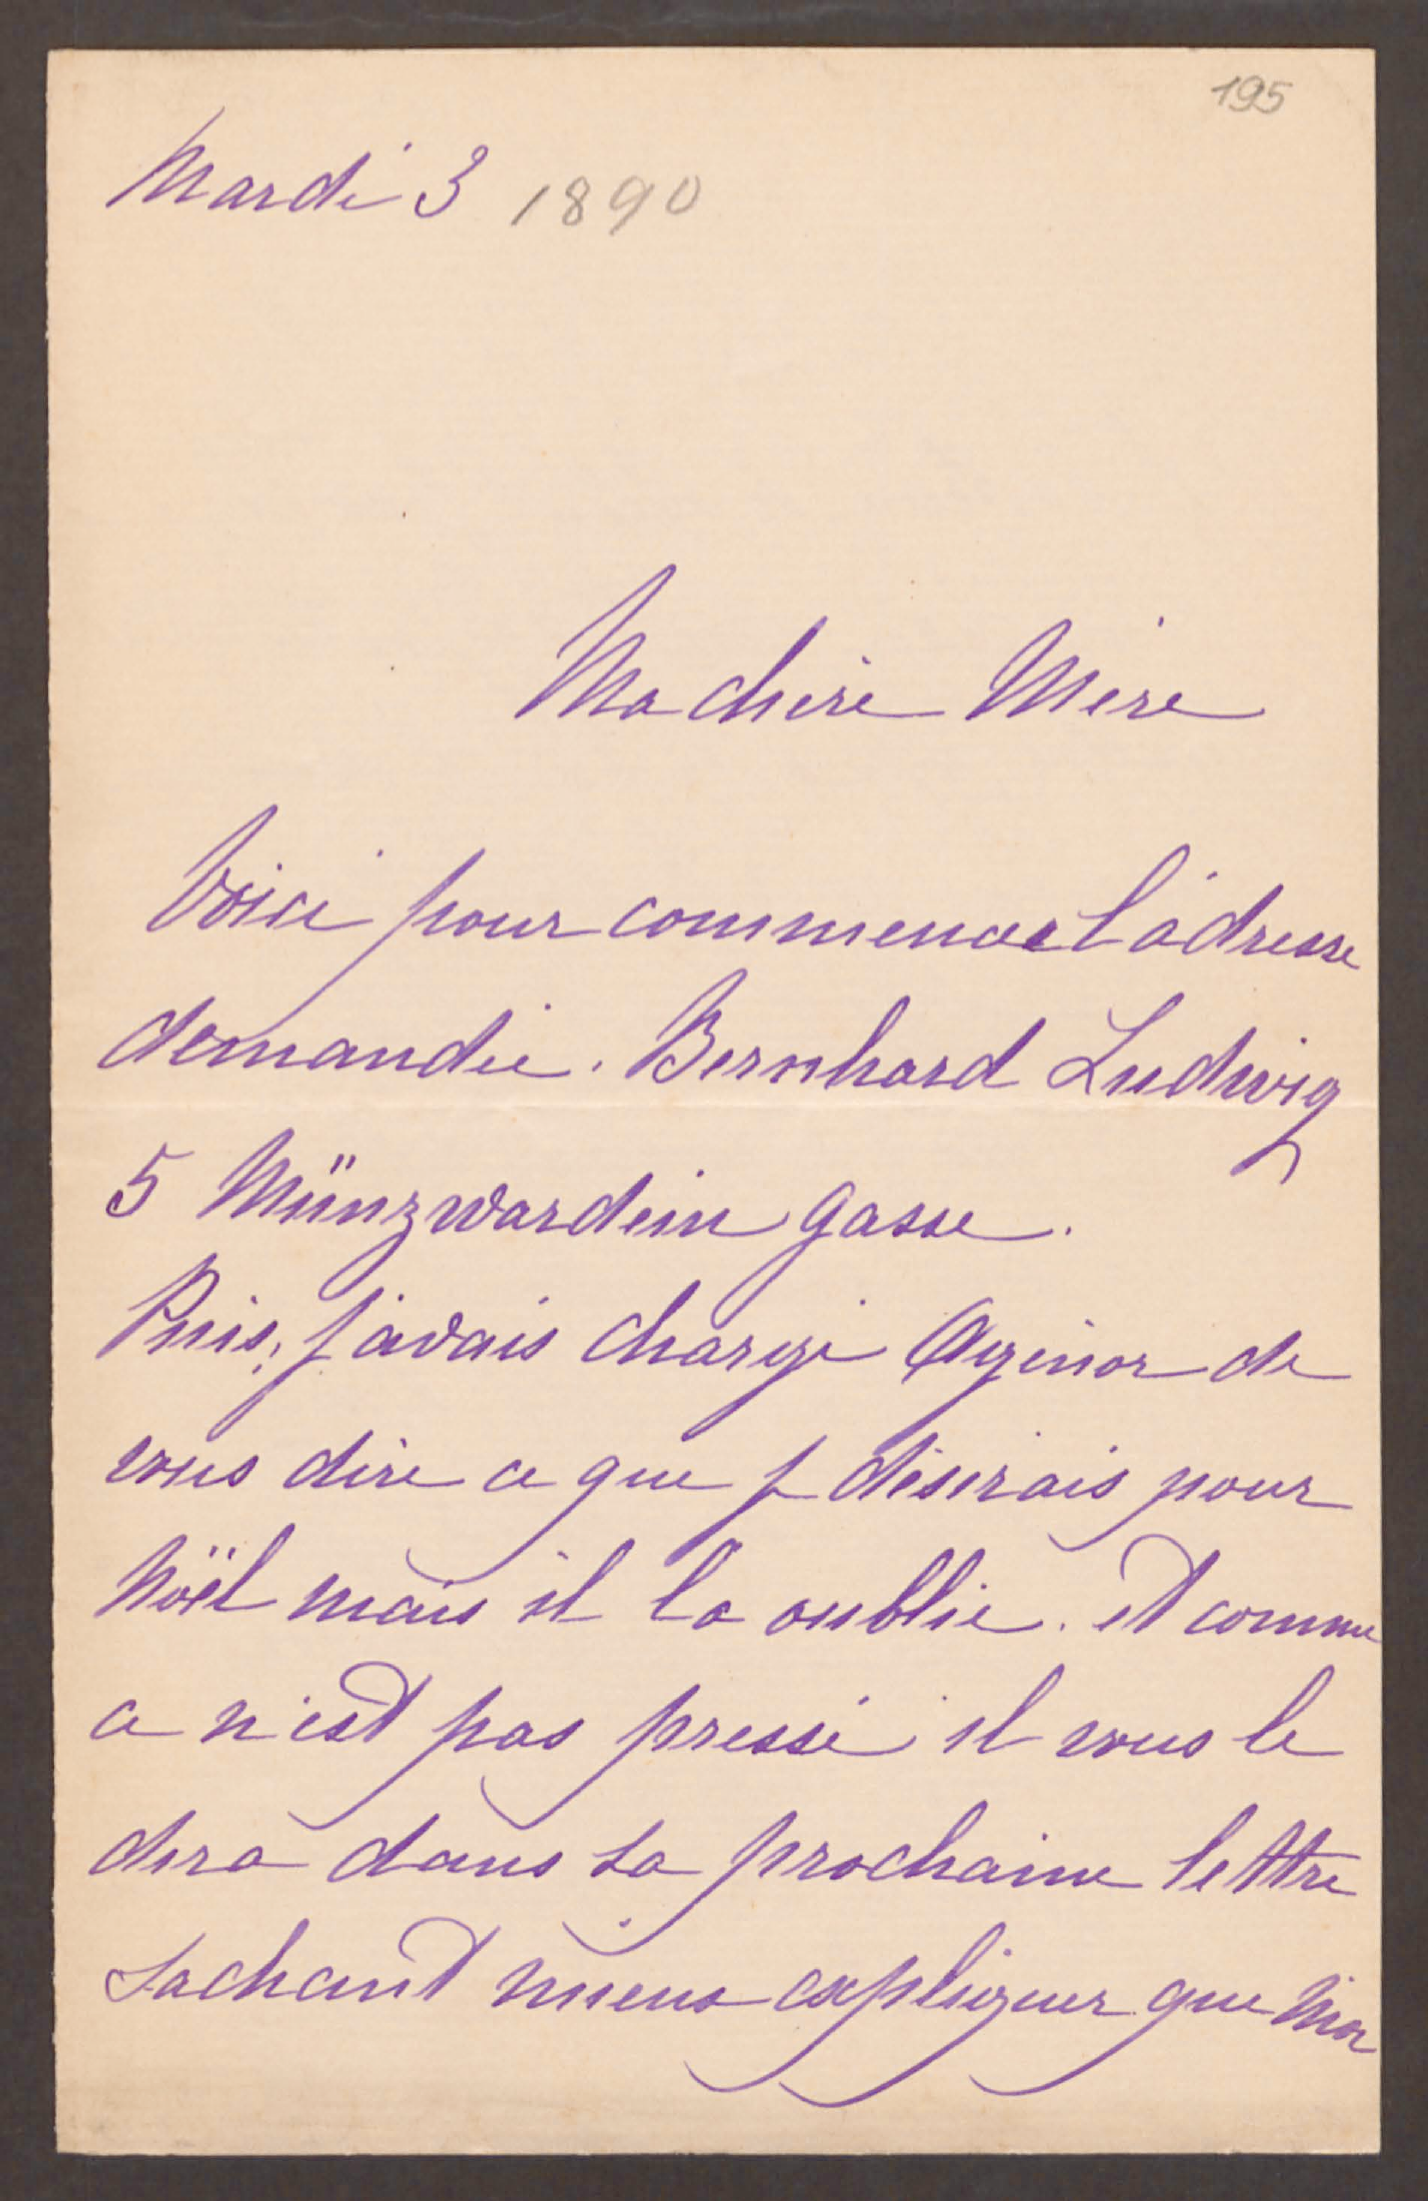 195
Mardi 3 1890
Ma chère Mère
Voici pour commencer l'adresse
demandée. Bernhard Ludwig
5 Münzwardein gasse.
Puis, j'avais chargé Agénor de
vous dire ce que je désirais pour
Nöel mais il l'a oublié. et comme
ce n'est pas pressé il vous le
dira dans sa prochaine lettre
sachant mieux expliquer que moi